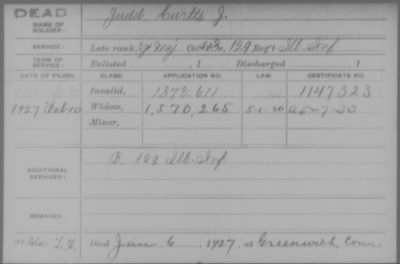 DEAD
NAME OF SOLDIER: Judd, Curtis J.
SERVICE: Late rank, Regt Ill. Inf
TERM OF SERVICE: Enlisted , 1 Discharged , 1
DATE OF FILING. CLASS. APPLICATION NO. LAW. CERTIFICATE NO.
Invalid, 1373,611 1147323
1927 Feb 10 Widow, 1,570,265 5-1-20 A 5-7-30
Minor,
ADDITIONAL SERVICES: B. 129 Ill. Inf.
REMARKS:
Died Jan 6, 1927, at Greenwich, Conn.